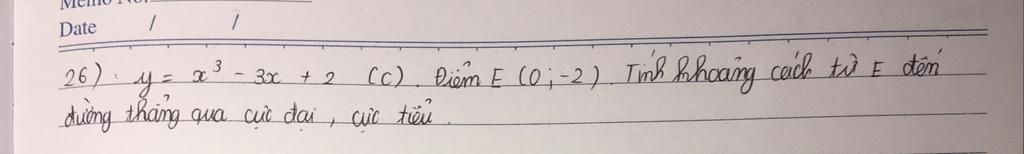 Memo No.
Date / /
26). y = x³ - 3x + 2 (C). Điểm E (0 ; -2). Tính khoảng cách từ E đến
đường thẳng qua cực đại, cực tiểu.